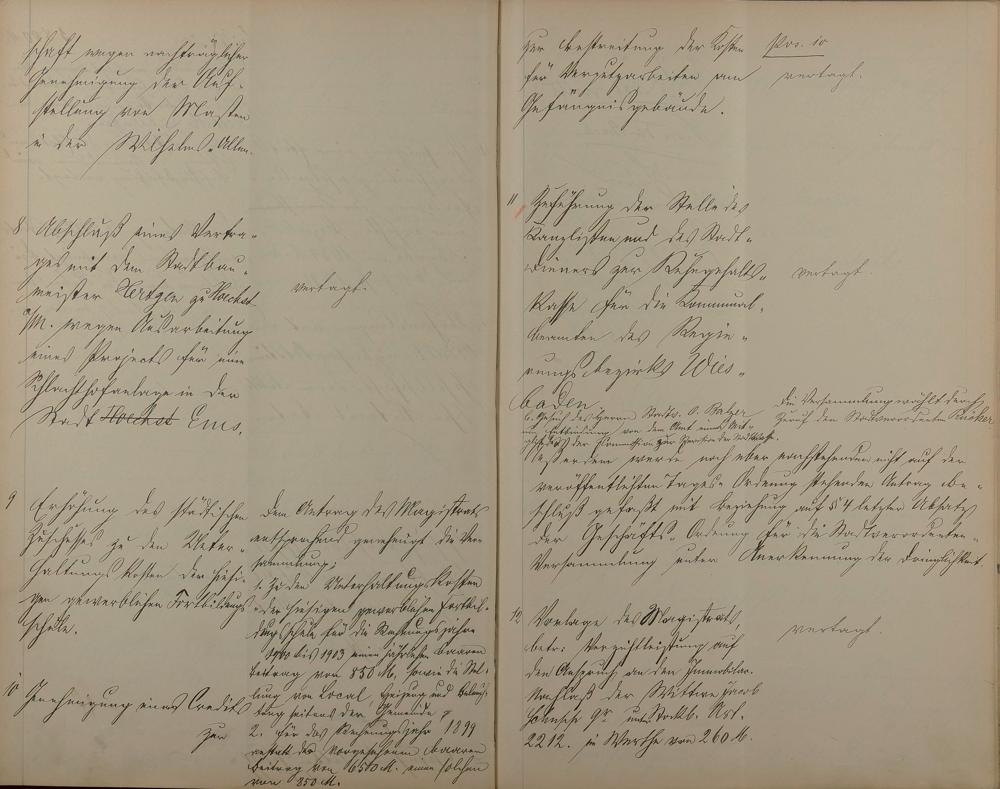 schaft wegen nachträglicher
Genehmigung der Auf-
stellung von Masten
in der Wilhelms-Allee.
8 Abschluß eines Vertra-
ges mit dem Stadtbau-
meister Hertgen zu Hoechst
a/M. wegen Ausarbeitung
eines Projects für eine
Schlachthofanlage in der
Stadt Hoechst Ems.
vertagt.
9 Erhöhung des städtischen
Zuschusses zu den Unter-
haltungskosten der hiesi-
gen gewerblichen Fortbildungs
schule.
Dem Antrag des Magistrats
entsprechend genehmigt die Ver-
sammlung:
1. zu den Unterhaltungskosten
der hiesigen gewerblichen Fortbil-
dungsschule für die Rechnungsjahre
1900 bis 1903 einen jährlichen baaren
Beitrag von 850 M. sowie die Stel-
lung von Local, Heizung und Beleuch-
tung seitens der Gemeinde
2. für das Rechnungsjahr 1899
anstatt des vorgesehenen baaren
Beitrag von 650 M. einen solchen
von 850 M.
10 Genehmigung eines Credits
zur
zur Bestreitung der Kosten
für Verputzarbeiten am
Gefängnisgebäude.
Pos. 10
vertagt.
11 Zuführung der Stelle des
Kanzlisten und des Stadt-
dieners zur Ruhegehalts-
Kasse für die Kommunal-
beamten des Regie-
rungsbezirks Wies-
baden.
vertagt.
Gesuch des Herrn Stadtv. O. Balzer
um Entbindung von dem Amt eines Mit-
gliedes der Commission zur Revision der Stadtkasse.
Die Versammlung wählt durch
Zuruf den Stadtverordneten
Außerdem wurde noch über nachstehenden nicht auf der
veröffentlichten Tages-Ordnung stehenden Antrag Be-
schluß gefaßt mit Beziehung auf § 4 letzten Absatz
der Geschäfts-Ordnung für die Stadtverordneten-
Versammlung unter Anerkennung der Dringlichkeit.
12 Vorlage des Magistrats
betr: Verzichtleistung auf
den Anspruch an den Immobilar-
Nachlaß der Wittwe Jacob
gr unter Stockb. Art.
2212. im Werthe von 260 M.
vertagt.